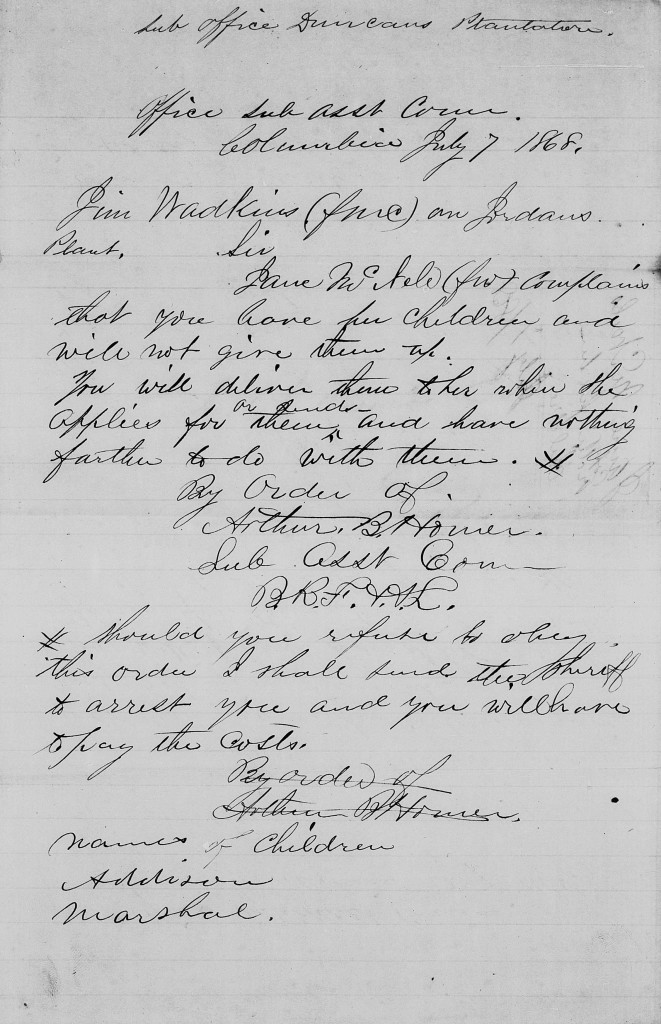 Sub Office Duncans Plantation.
Office Sub Asst Com.
Columbia July 7 1868.
Jim Wadkins (fmc) on Jordans
Plant. Sir
Jane McNele (fw) complains
that you have her children and
will not give them up.
You will deliver them to her when she
applies for or sends them and have nothing
farther to do with them. #
By Order of
Arthur B. Homer.
Sub Asst Com
B.R.F.&A.L.
# Should you refuse to obey
this order I shall send the Sheriff
to arrest you and you will have
to pay the costs.
By order of
Arthur B Homer.
names of Children
Addison
Marshal.